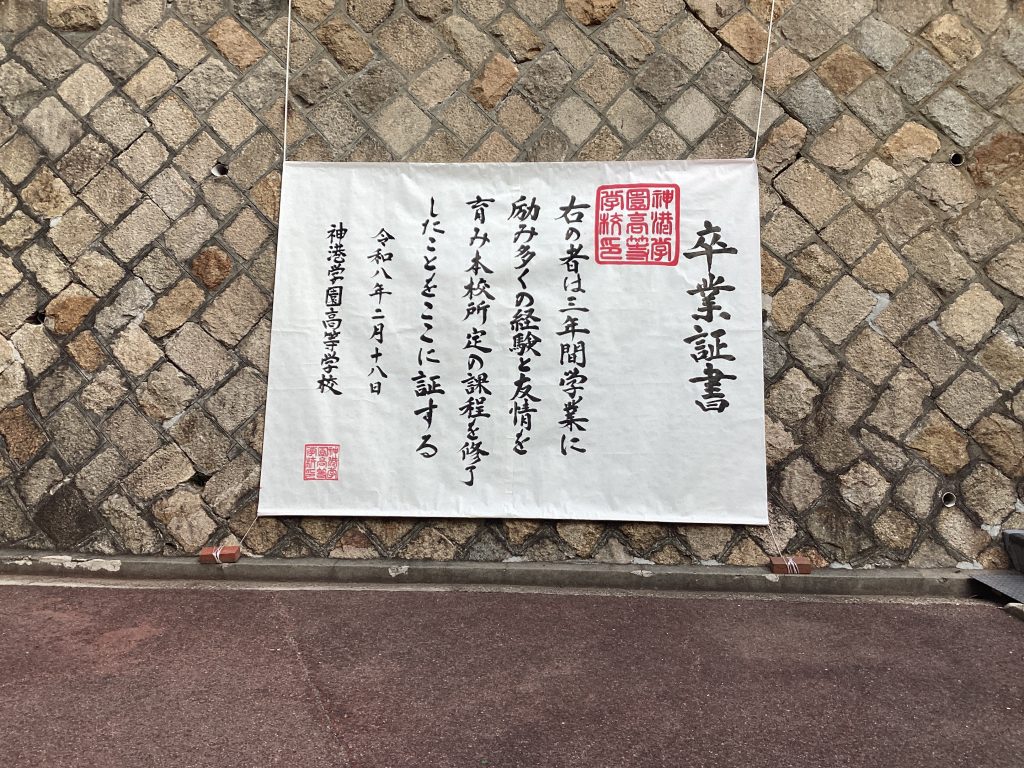 卒業証書
神港学園高等学校印
右の者は三年間学業に
励み多くの経験と友情を
育み本校所定の課程を修了
したことをここに証する
令和八年二月十八日
神港学園高等学校
神港学園高等学校印